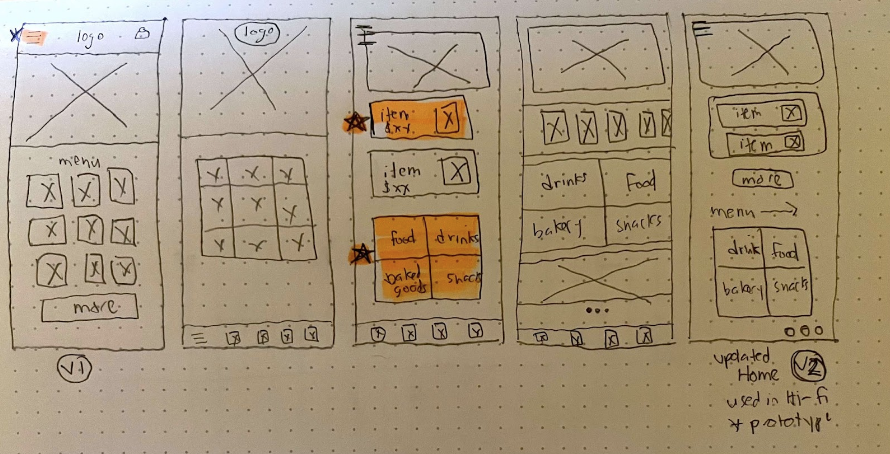 logo
menu
more
V1
logo
item
$xx
item
$xx
food drinks
baked snack
goods
drinks Food
bakery snacks
item
item
more
menu
drink food
bakery snack
updated
Home V2
used in Hi-fi
* prototype